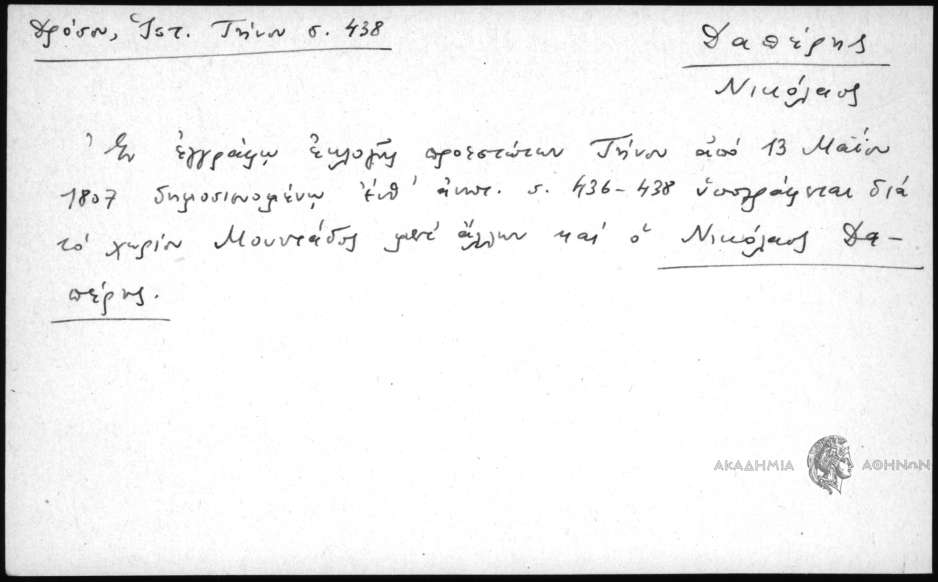 Δρόσου, Ἱστ. Τήνου σ. 438
Δαπέρης
Νικόλαος
Ἐν ἐγγράφῳ ἐκλογῆς προεστώτων Τήνου ἀπό 13 Μαΐου
1807 δημοσιευομένῳ ἐνθ' ἀνωτ. σ. 436-438 ὑπογράφεται διά
τό χωρίον Μουντάδος μετ' ἄλλων καί ὁ Νικόλαος Δα-
πέρης.
ΑΚΑΔΗΜΙΑ ΑΘΗΝΩΝ